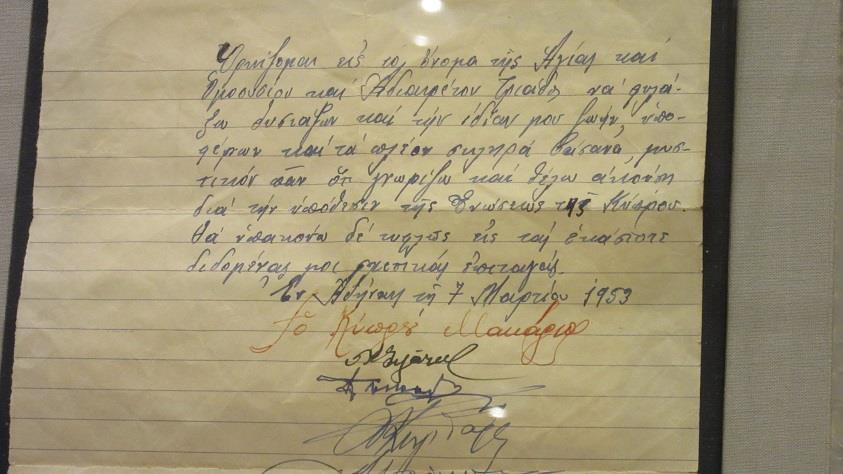 Ὁρκίζομαι εἰς τὸ ὄνομα τῆς Ἁγίας καὶ
Ὁμοουσίου καὶ Ἀδιαιρέτου Τριάδος νὰ φυλά-
ξω θυσιάζων καὶ τὴν ἰδίαν μου ζωήν, ὑπο-
φέρων καὶ τὰ πλέον σκληρὰ βάσανα, μυσ-
τικὸν πᾶν ὅτι γνωρίζω καὶ θέλω ἀκούσῃ
διὰ τὴν ὑπόθεσιν τῆς Ἑνώσεως τῆς Κύπρου.
Θὰ ὑπακούω δὲ τυφλῶς εἰς τὰς ἑκάστοτε
διδομένας μοι σχετικὰς ἐπιταγάς.
Ἐν Ἀθήναις τῇ 7 Μαρτίου 1953
Ὁ Κύπρου Μακάριος